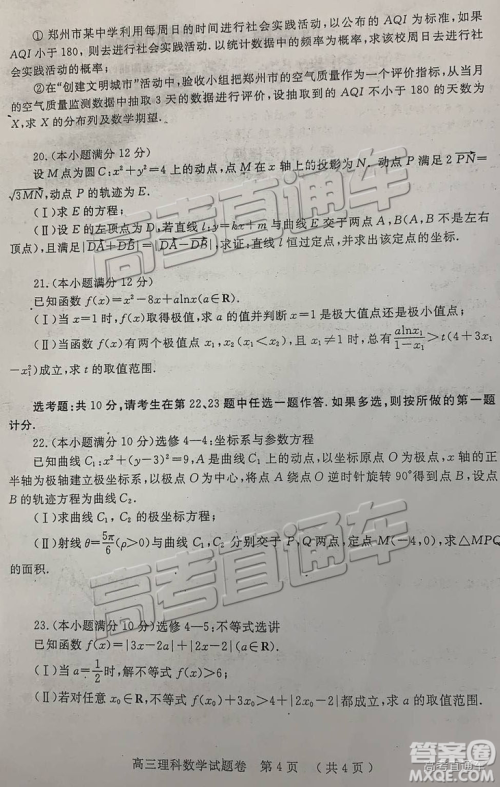 ① 郑州市某中学利用每周日的时间进行社会实践活动,以公布的 AQI 为标准,如果
AQI 小于 180,则去进行社会实践活动.以统计数据中的频率为概率,求该校周日去进行社
会实践活动的概率;
②在“创建文明城市”活动中,验收小组把郑州市的空气质量作为一个评价指标,从当月
的空气质量监测数据中抽取 3 天的数据进行评价,设抽取到的 AQI 不小于 180 的天数为
X,求 X 的分布列及数学期望.
20.(本小题满分 12 分)
设 M 点为圆 C:x²+y²=4 上的动点,点 M 在 x 轴上的投影为 N. 动点 P 满足 2PN⃗=
√3MN⃗,动点 P 的轨迹为 E.
(Ⅰ)求 E 的方程;
(Ⅱ)设 E 的左顶点为 D,若直线 l:y=kx+m 与曲线 E 交于两点 A,B(A,B 不是左右
顶点),且满足|DA⃗+DB⃗|=|DA⃗-DB⃗|,求证:直线 l 恒过定点,并求出该定点的坐标.
21.(本小题满分 12 分)
已知函数 f(x)=x²-8x+alnx(a∈R).
(Ⅰ)当 x=1 时,f(x)取得极值,求 a 的值并判断 x=1 是极大值点还是极小值点;
(Ⅱ)当函数 f(x)有两个极值点 x₁,x₂(x₁<x₂),且 x₁≠1 时,总有 alnx₁/(1-x₁)>t(4+3x₁
-x₁²)成立,求 t 的取值范围.
选考题:共 10 分,请考生在第 22、23 题中任选一题作答.如果多选,则按所做的第一题
计分.
22.(本小题满分 10 分)选修 4—4:坐标系与参数方程
已知曲线 C₁:x²+(y-3)²=9,A 是曲线 C₁ 上的动点,以坐标原点 O 为极点,x 轴的正
半轴为极轴建立极坐标系,以极点 O 为中心,将点 A 绕点 O 逆时针旋转 90°得到点 B,设点
B 的轨迹方程为曲线 C₂.
(Ⅰ)求曲线 C₁,C₂ 的极坐标方程;
(Ⅱ)射线 θ=5π/6(ρ>0)与曲线 C₁,C₂ 分别交于 P,Q 两点,定点 M(-4,0),求△MPQ
的面积.
23.(本小题满分 10 分)选修 4—5:不等式选讲
已知函数 f(x)=|3x-2a|+|2x-2|(a∈R).
(Ⅰ)当 a=1/2 时,解不等式 f(x)>6;
(Ⅱ)若对任意 x₀∈R,不等式 f(x₀)+3x₀>4+|2x₀-2|都成立,求 a 的取值范围.
高三理科数学试题卷 第 4 页 (共 4 页)
高考直通车
高考直通车
高考直通车
答案圈
MXQE.COM